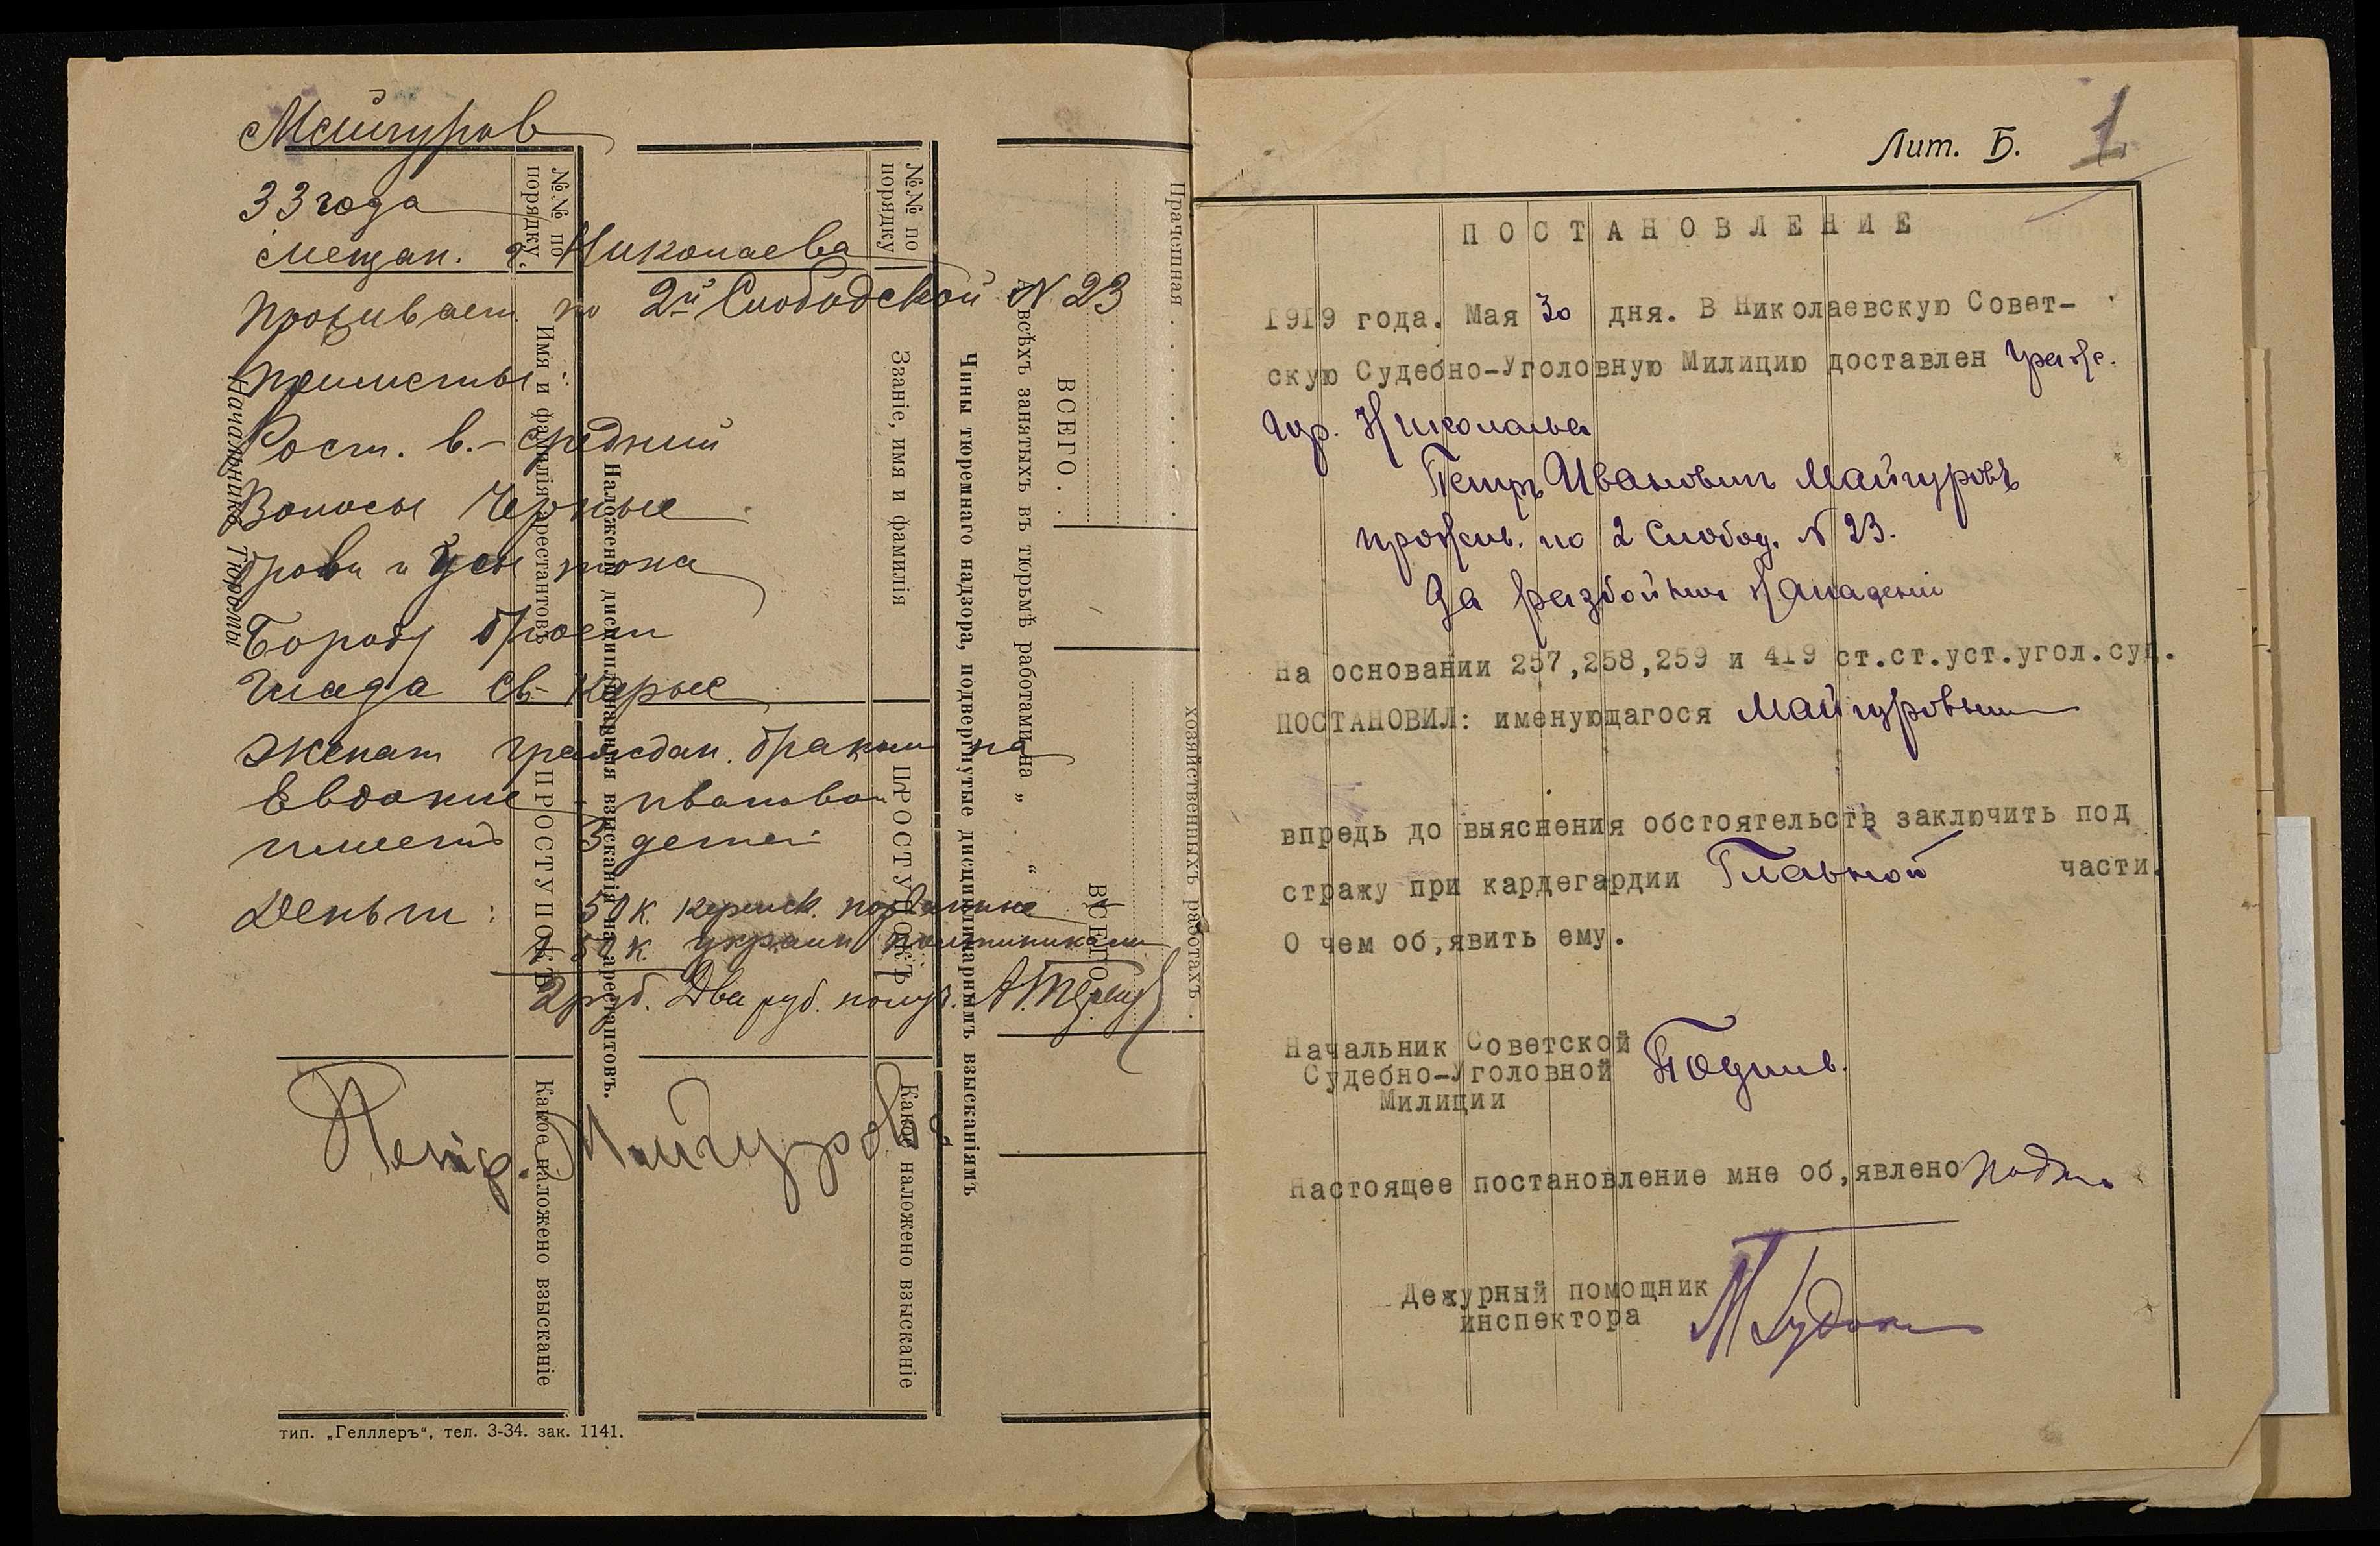 Майгуров
33 года
мещан. г. Николаева
проживает по 2й Слободской № 23
приметы:
Рост. в.- средний
Волосы Черные
Брови и Усы тоже
Бороду бреет
Глаза св- карые
женат граждан. браком на
Евдокие Ивановой
имеет 3 детей
Деньги: 50 к. керенск.
1 50 к. украин
2 руб. Два руб. получ.
Петр. Майгуровъ
№№ по порядку.
Имя и фамилія арестантовъ
ПРОСТУПОКЪ
Какое наложено взысканіе
Начальникъ Тюрьмы
Наложенія дисциплинарныя взысканія на арестантовъ.
№№ по порядку
Званіе, имя и фамилія
ПРОСТУПОКЪ
Какое наложено взысканіе
Чины тюремнаго надзора, подвергнутые дисциплинарнымъ взысканіямъ
всѣхъ занятыхъ въ тюрьмѣ работами на „ “
ВСЕГО . .
ВСЕГО
Прачешная
хозяйственныхъ работахъ .
тип. „Гелллеръ“, тел. 3-34. зак. 1141.
Лит. Б. 1
ПОСТАНОВЛЕНИЕ
1919 года. Мая 30 дня. В Николаевскую Совет-
скую Судебно-Уголовную Милицию доставлен граж.
гор. Николаева
Петръ Ивановичъ Майгуровъ
прожив. по 2 Слобод. № 23.
За разбойныя нападенія
На основании 257,258,259 и 419 ст.ст.уст.угол.суд.
ПОСТАНОВИЛ: именующагося Майгуровым
впредь до выяснения обстоятельств заключить под
стражу при кардегардии Главной части.
О чем об,явить ему.
Начальник Советской
Судебно-Уголовной
Милиции
Настоящее постановление мне об,явлено
Дежурный помощник
инспектора